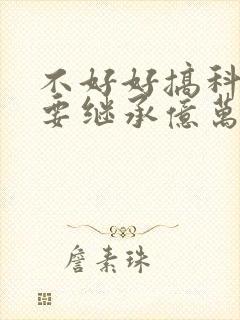 不好好搞科
要继承億萬
詹素珠